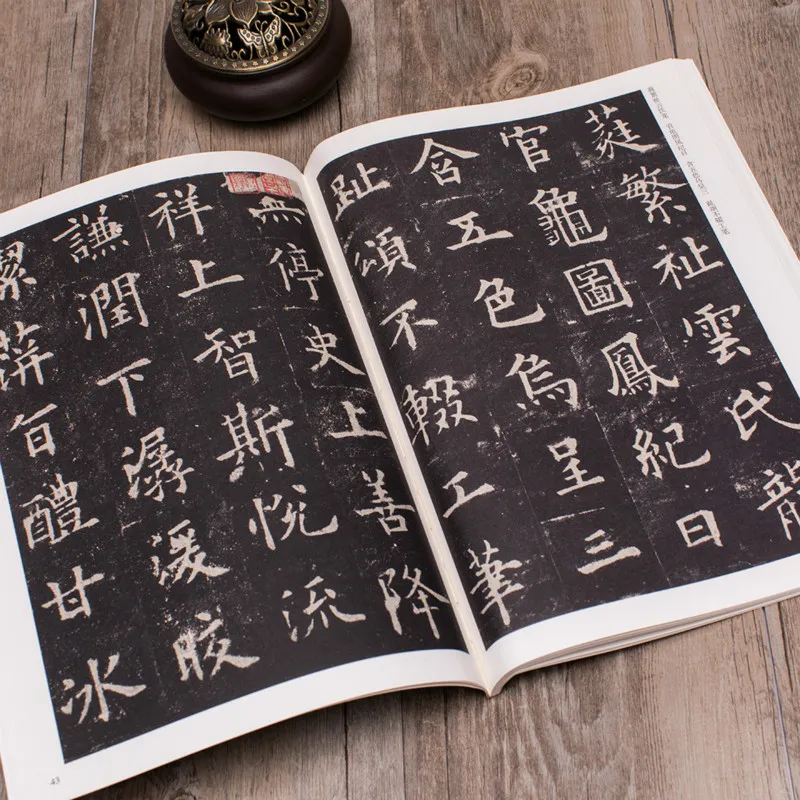 蕤繁祉雲氏龍
官龜圖鳳紀日
含五色烏呈三
趾頌不輟工筆
無停史上善降
祥上智斯悅流
謙潤下潺湲皎
蓱旨醴甘冰
43